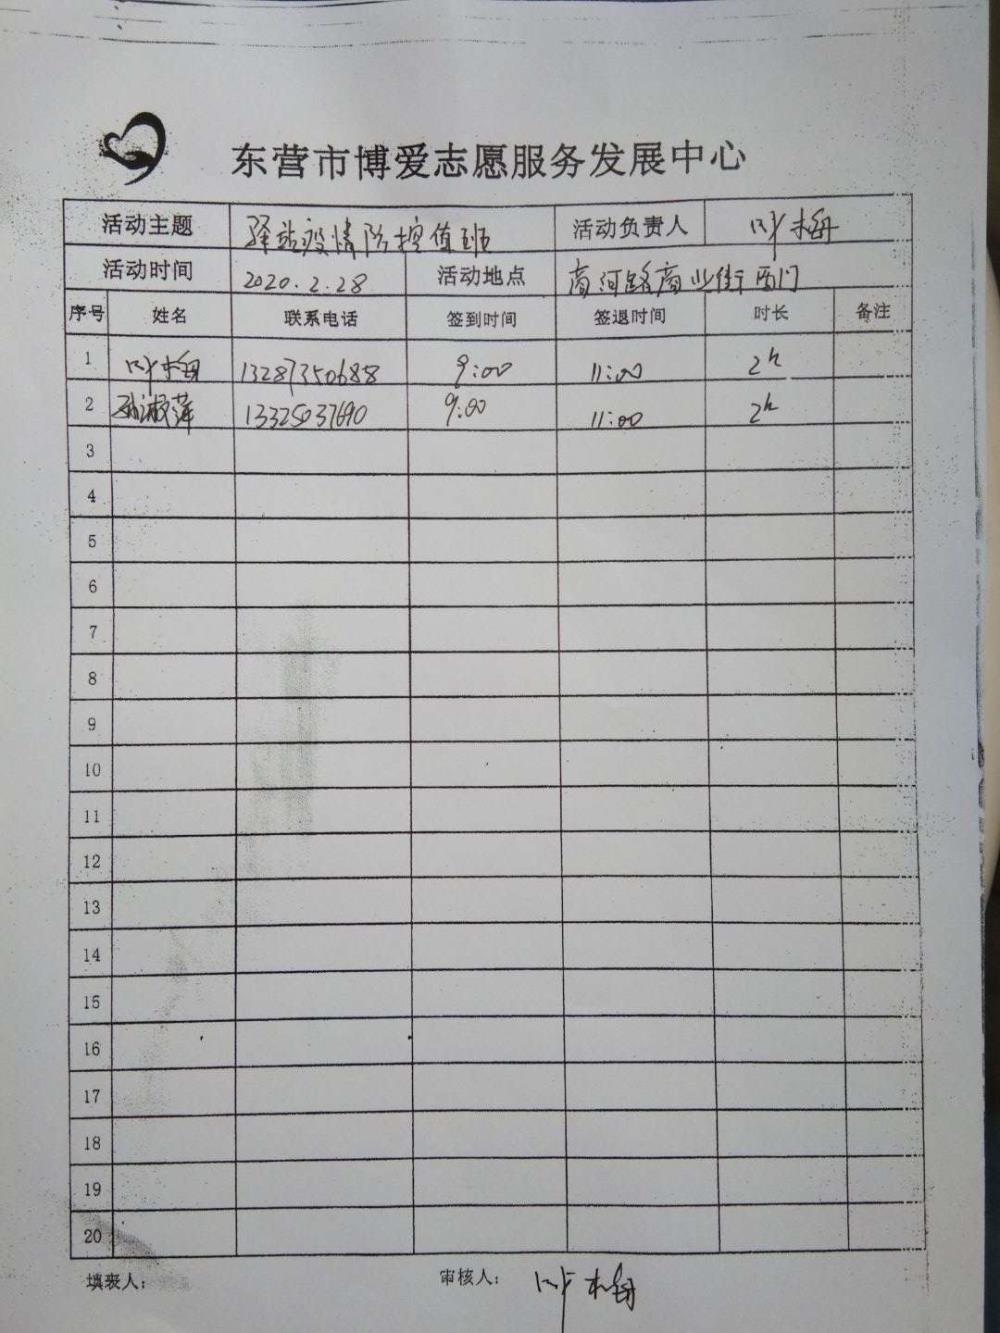 东营市博爱志愿服务发展中心
活动主题 驿站疫情防控值班 活动负责人 叶梅
活动时间 2020.2.28 活动地点 商河路商业街西门
序号 姓名 联系电话 签到时间 签退时间 时长 备注
1 叶梅 13287350688 9:00 11:00 2h
2 孙淑萍 13325037690 9:00 11:00 2h
3
4
5
6
7
8
9
10
11
12
13
14
15
16
17
18
19
20
填表人： 审核人： 叶梅